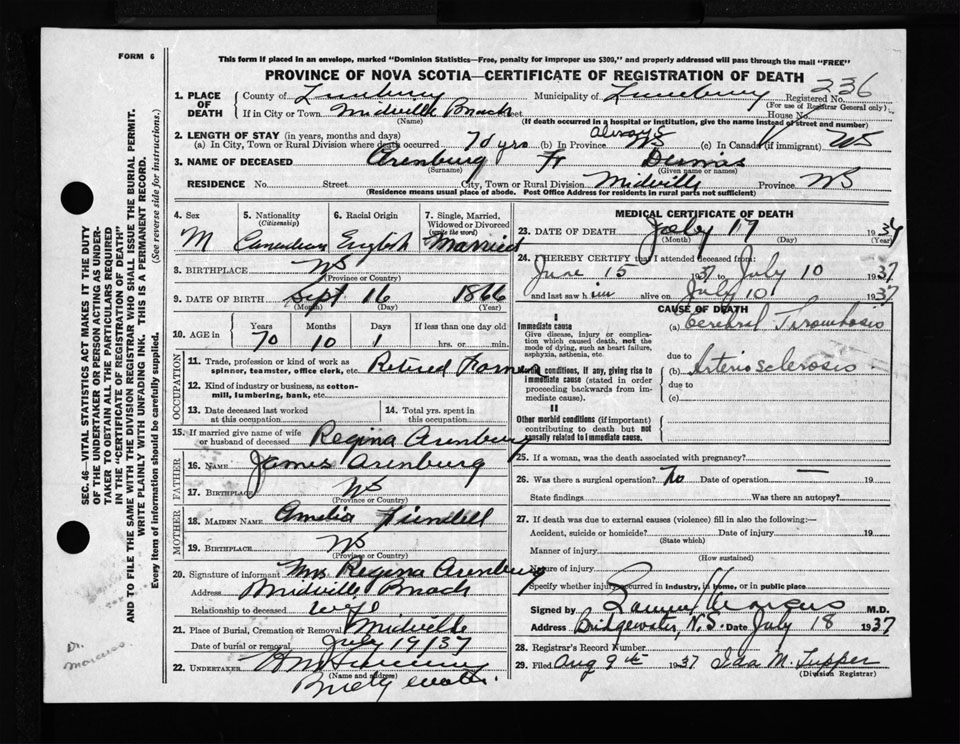 FORM 6
This form if placed in an envelope, marked "Dominion Statistics—Free, penalty for improper use $300," and properly addressed will pass through the mail "FREE"
PROVINCE OF NOVA SCOTIA—CERTIFICATE OF REGISTRATION OF DEATH
236
1. PLACE OF DEATH County of Lunenburg Municipality of Lunenburg Registered No.
(For use of Registrar General only)
If in City or Town Midville Branch Street House No.
(Name) (If death occurred in a hospital or institution, give the name instead of street and number)
2. LENGTH OF STAY (in years, months and days)
(a) In City, Town or Rural Division where death occurred 70 yrs (b) In Province always NS (c) In Canada (if immigrant) NS
3. NAME OF DECEASED Arenburg Dennis
(Surname) (Given name or names)
RESIDENCE No. Street City, Town or Rural Division Midville Province NS
(Residence means usual place of abode. Post Office Address for residents in rural parts not sufficient)
4. Sex M
5. Nationality (Citizenship) Canadian
6. Racial Origin English
7. Single, Married, Widowed or Divorced (write the word) Married
8. BIRTHPLACE NS
(Province or Country)
9. DATE OF BIRTH Sept 16 1866
(Month) (Day) (Year)
10. AGE in Years Months Days If less than one day old
70 10 1 hrs. or min.
OCCUPATION
11. Trade, profession or kind of work as spinner, teamster, office clerk, etc. Retired Farmer
12. Kind of industry or business, as cotton-mill, lumbering, bank, etc.
13. Date deceased last worked at this occupation
14. Total yrs. spent in this occupation
15. If married give name of wife or husband of deceased Regina Arenburg
FATHER
16. NAME James Arenburg
17. BIRTHPLACE NS
(Province or Country)
MOTHER
18. MAIDEN NAME Amelia
19. BIRTHPLACE NS
(Province or Country)
20. Signature of informant Mrs Regina Arenburg
Address Midville Branch
Relationship to deceased wife
21. Place of Burial, Cremation or Removal Midville
Date of burial or removal July 19/37
22. UNDERTAKER
(Name and address)
Bridgewater
MEDICAL CERTIFICATE OF DEATH
23. DATE OF DEATH July 17 1937
(Month) (Day) (Year)
24. I HEREBY CERTIFY that I attended deceased from:
June 15 1937 to July 10 1937
and last saw him alive on July 10 1937
CAUSE OF DEATH
I
Immediate cause
Give disease, injury or complication which caused death, not the mode of dying, such as heart failure, asphyxia, asthenia, etc.
(a) Cerebral Thrombosis
due to
Morbid conditions, if any, giving rise to immediate cause (stated in order proceeding backwards from immediate cause).
(b) Arterio sclerosis
due to
(c)
II
Other morbid conditions (if important) contributing to death but not causally related to immediate cause.
25. If a woman, was the death associated with pregnancy?
26. Was there a surgical operation? No Date of operation — 19
State findings Was there an autopsy?
27. If death was due to external causes (violence) fill in also the following:—
Accident, suicide or homicide? Date 19
(State which)
Manner of injury
(How sustained)
Nature of injury
Specify whether injury occurred in industry, in home, or in public place
Signed by Marcus M.D.
Address Bridgewater, N.S. Date July 18 1937
28. Registrar's Record Number
29. Filed Aug 9th 1937 Ida M. Tupper
(Division Registrar)
SEC. 46—VITAL STATISTICS ACT MAKES IT THE DUTY
OF THE UNDERTAKER OR PERSON ACTING AS UNDER-
TAKER TO OBTAIN ALL THE PARTICULARS REQUIRED
IN THE "CERTIFICATE OF REGISTRATION OF DEATH"
AND TO FILE THE SAME WITH THE DIVISION REGISTRAR WHO SHALL ISSUE THE BURIAL PERMIT.
WRITE PLAINLY WITH UNFADING INK. THIS IS A PERMANENT RECORD.
Every item of information should be carefully supplied. (See reverse side for instructions.)
Dr.
Marcus